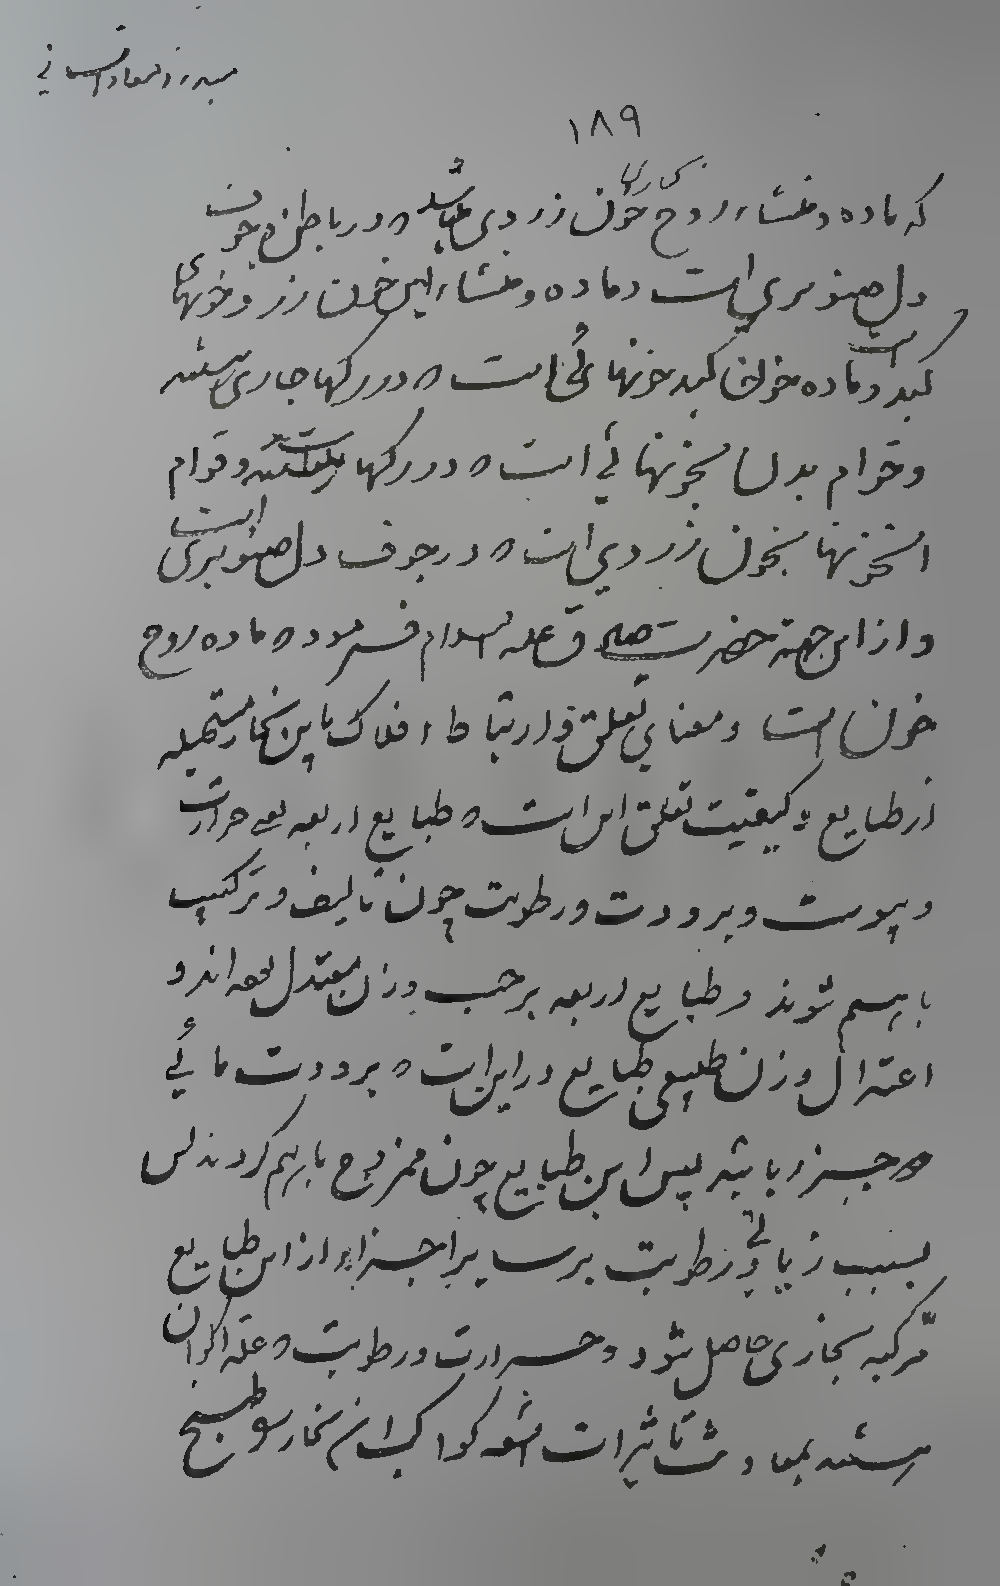 ۱۸۹
که ماده و منشاء روح خون زردی میباشد که در باطن و جوف
دل صنوبری است و ماده و منشاء این خون زرد خونهای
کبد است و ماده خون کبد خونهائی است که در رگها جاری هستند
و قوام بدن بخونهائی است که در رگها هستند و قوام
آنخونها بخون زردی است که در جوف دل صنوبری است
و از این جهته حضرت صادق علیه السلام فرمود که ماده روح
خون است و معنای تعلق و ارتباط افلاک باین بخار مستحیله
از طبایع و کیفیت تعلق این است که طبایع اربعه یعنی حرارت
و یبوست و برودت و رطوبت چون تألیف و ترکیب
باهم شوند و طبایع اربعه بر حسب وزن معتدل بوده اند و
اعتدال وزن طبیعی طبایع در این است که برودت مائی
دو جزء باشد پس این طبایع چون ممزوج باهم کردند پس
بسبب زیادتی رطوبت بر سایر اجزاء از این طبایع
مرکبه بخاری حاصل شود و حرارت و رطوبت که علة اکوان
هستند بمعاونت تأثیرات اشعه کواکب آن بخار را طبخ